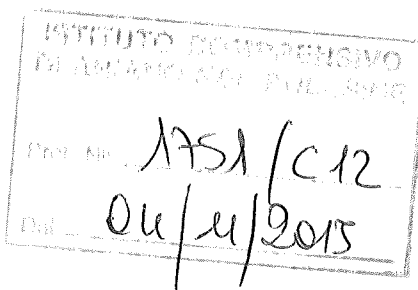 ISTITUTO COMPRENSIVO
DI
Prot. Nr. 1751/C12
Del 04/11/2015